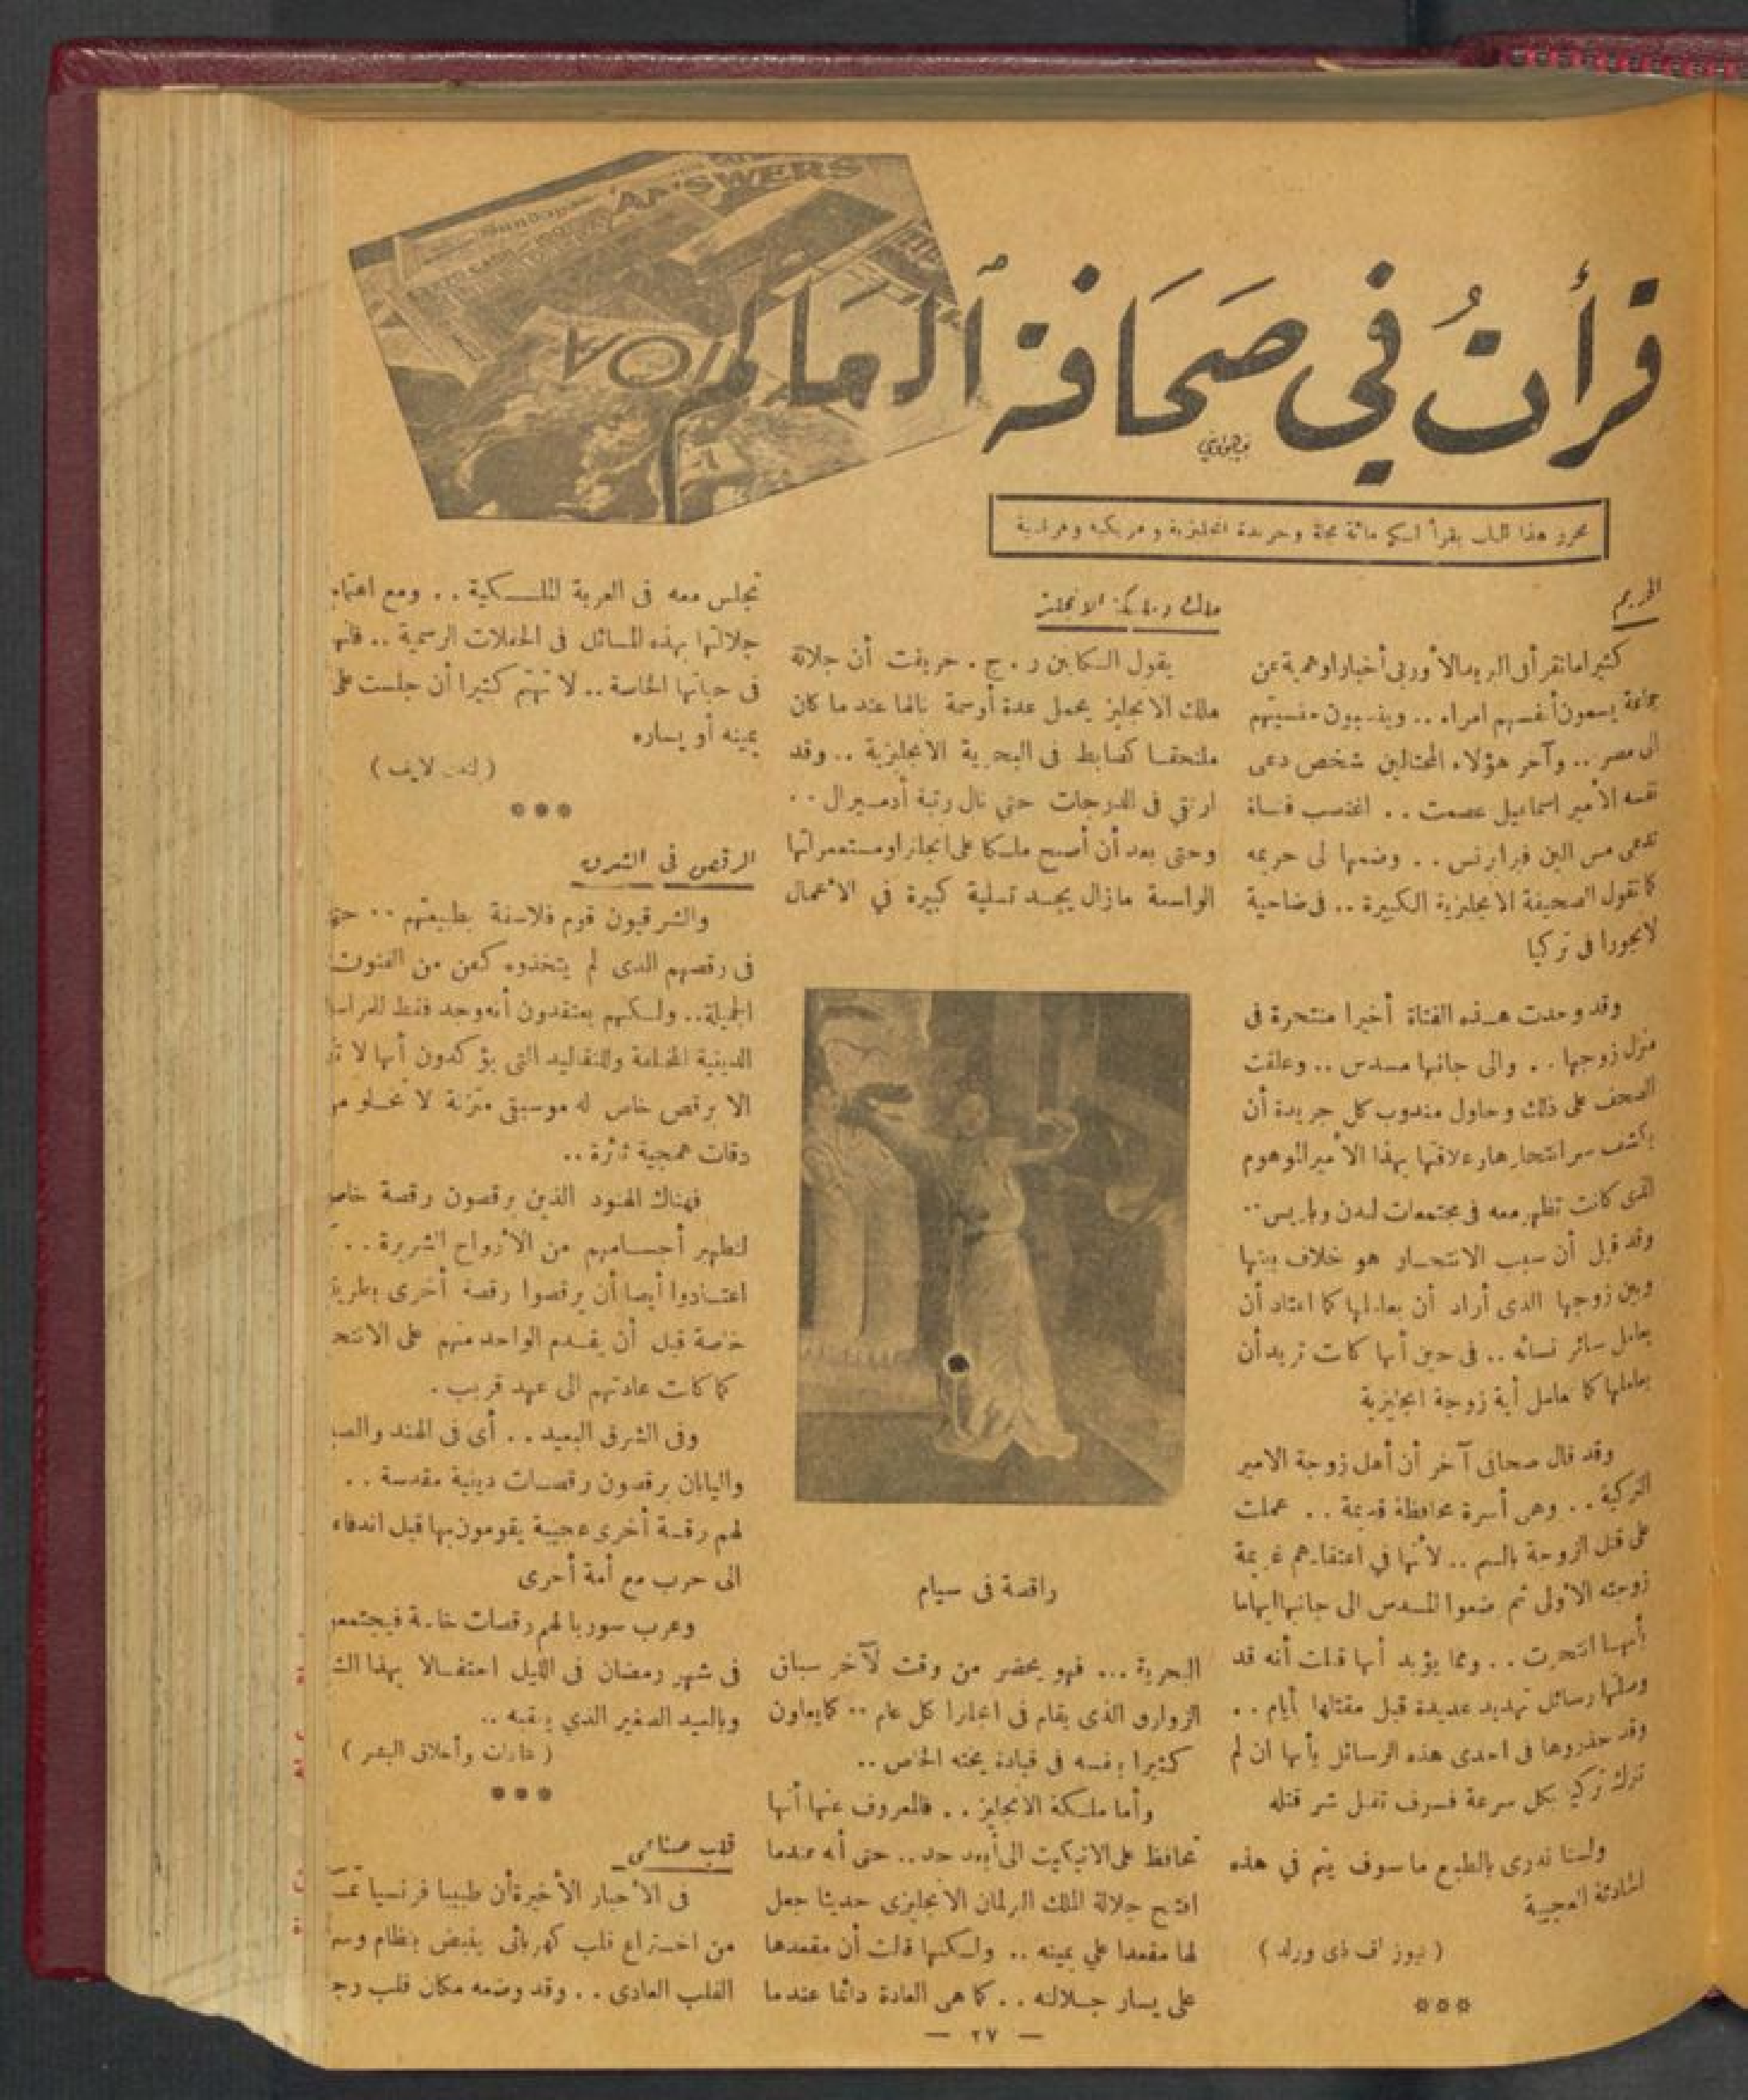 ANSWERS
قرأتُ في صحافة العالم
محرر هذا الباب يقرأ لكم مائة مجلة وجريدة انجليزية وامريكية وفرنسية
الحريم
كثيرا ما نقرأ في البريد الأوربي أخبارا وهمية عن
جماعة يسمون أنفسهم امراء .. وينسبون جنسيتهم
الى مصر .. وآخر هؤلاء المحتالين شخص دعى
نفسه الأمير اسماعيل عصمت .. اغتصب فتاة
تدعى مس الين .. وضمها الى حريمه
كما تقول الصحيفة الانجليزية الكبيرة .. في ضاحية
في تركيا
وقد وجدت هذه الفتاة أخيرا منتحرة في
منزل زوجها .. والى جانبها مسدس .. وعلقت
الصحف على ذلك وحاول مندوب كل جريدة أن
يكشف سر انتحارها وعلاقتها بهذا الأمير الموهوم
الذى كانت تظهر معه في مجتمعات لندن وباريس ..
وقد قيل أن سبب الانتحار هو خلاف بينها
وبين زوجها الذى أراد أن يعاملها كما اعتاد أن
يعامل سائر نسائه .. في حين أنها كانت تريد أن
يعاملها كما تعامل أية زوجة انجليزية
وقد قال صحافى آخر أن أهل زوجة الامير
التركية .. وهى أسرة محافظة قديمة .. عملت
على قتل الزوجة بالسم .. لأنها في اعتقادهم غريمة
زوجته الأولى ثم وضعوا المسدس الى جانبها ايهاما
بأنها انتحرت .. ومما يؤيد أنها قتلت أنه قد
وصلتها رسائل تهديد عديدة قبل مقتلها بأيام ..
وقد حذروها في احدى هذه الرسائل بأنها ان لم
تترك تركيا بكل سرعة فسوف تقتل شر قتله
ولسنا ندرى بالطبع ما سوف يتم في هذه
الحادثة العجيبة
( نيوز اف ذى ورلد )
***
ملك وملكة الانجليز
يقول الكابتن ر . ج . جريفت أن جلالة
ملك الانجليز يحمل عدة أوسمة نالها عندما كان
ملتحقا كضابط فى البحرية الانجليزية .. وقد
ارتقى فى الدرجات حتى نال رتبة أدميرال ..
وحتى بعد أن أصبح ملكا على انجلترا ومستعمراتها
الواسعة مازال يجد تسلية كبيرة في الأعمال
راقصة فى سيام
البحرية ... فهو يحضر من وقت لآخر سباق
الزوارق الذى يقام فى انجلترا كل عام .. كما يعاون
كثيرا بنفسه فى قيادة يخته الخاص ..
وأما ملكة الانجليز .. فالمعروف عنها أنها
تحافظ على الاتيكيت الى أبعد حد .. حتى أنه عندما
افتتح جلالة الملك البرلمان الانجليزى حديثا جعل
لها مقعدا على يمينه .. ولكنها قالت أن مقعدها
على يسار جلالته .. كما هى العادة دائما عندما
تجلس معه فى العربة الملكية .. ومع اهتمام
جلالتها بهذه المسائل فى الحفلات الرسمية .. فانها
فى حياتها الخاصة .. لا تهتم كثيرا أن جلست على
يمينه أو يساره
( لندن لايف )
***
الرقص فى الشرق
والشرقيون قوم فلاسفة بطبيعتهم .. حتى
فى رقصهم الذى لم يتخذوه كفن من الفنون
الجميلة .. ولكنهم يعتقدون أنه وجد فقط للمراسم
الدينية المختلفة وللتقاليد التى يؤكدون أنها لا
الا برقص خاص له موسيقى متزنة لا تخلو من
دقات همجية ثائرة ..
فهناك الهنود الذين يرقصون رقصة خاصة
لتطهير أجسامهم من الأرواح الشريرة ..
اعتادوا أيضا أن يرقصوا رقصة أخرى بطريقة
خاصة قبل أن يقدم الواحد منهم على الانتحار
كما كانت عادتهم الى عهد قريب .
وفى الشرق البعيد .. أى فى الهند والصين
واليابان يرقصون رقصات دينية مقدسة ..
لهم رقصة أخرى عجيبة يقومون بها قبل اندفاعهم
الى حرب مع أمة أخرى
وعرب سوريا لهم رقصات خاصة فيجتمعون
فى شهر رمضان فى الليل احتفالا بهذا الشهر
وبالعيد الصغير الذي يعقبه ..
( عادات وأخلاق البشر )
***
قلب صناعى
فى الأخبار الأخيرة أن طبيبا فرنسيا
من اختراع قلب كهربائى ينبض بنظام
القلب العادى .. وقد وضعه مكان قلب
— ٢٧ —